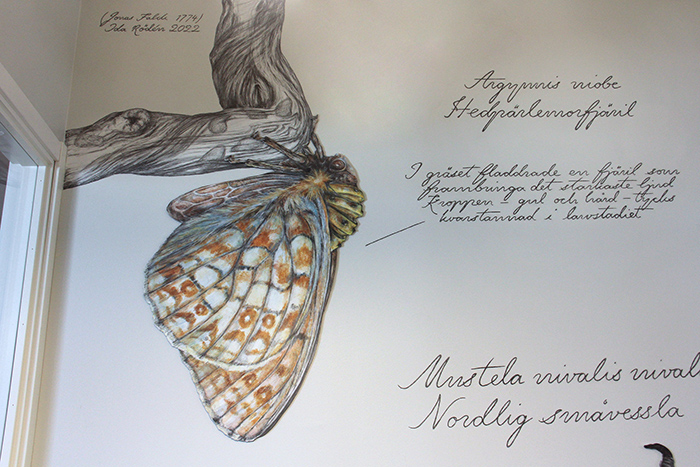 (Jonas Falck 1774)
Ida Rödén 2022
Argynnis niobe
Hedpärlemorfjäril
I gräset fladdrade en fjäril som
frambringa det starkaste ljud
Kroppen – gul och hård – tycks
kvarstannad i larvstadiet
Mustela nivalis nival
Nordlig småvessla